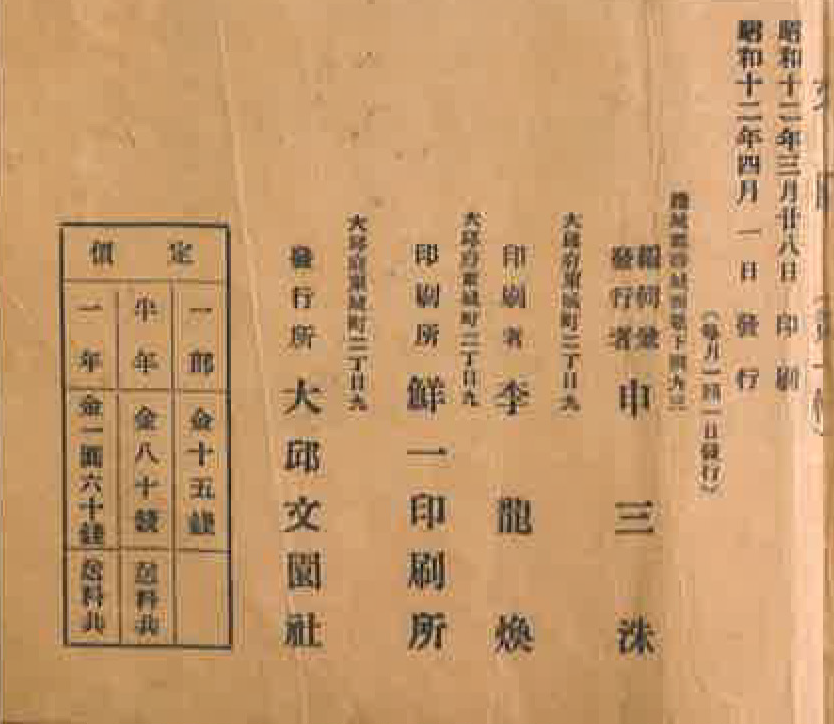 昭和十二年三月廿八日 印刷
昭和十二年四月 一 日 發行
(每月一回一日發行)
編輯兼
發行者 申三洙
大邱府東城町二丁目九
印刷者 李龍煥
大邱府東城町二丁目九
印刷所 鮮一印刷所
大邱府東城町二丁目九
發行所 大邱文園社
定價
一部 金十五錢
半年 金八十錢 送料共
一年 金一圓六十錢 送料共